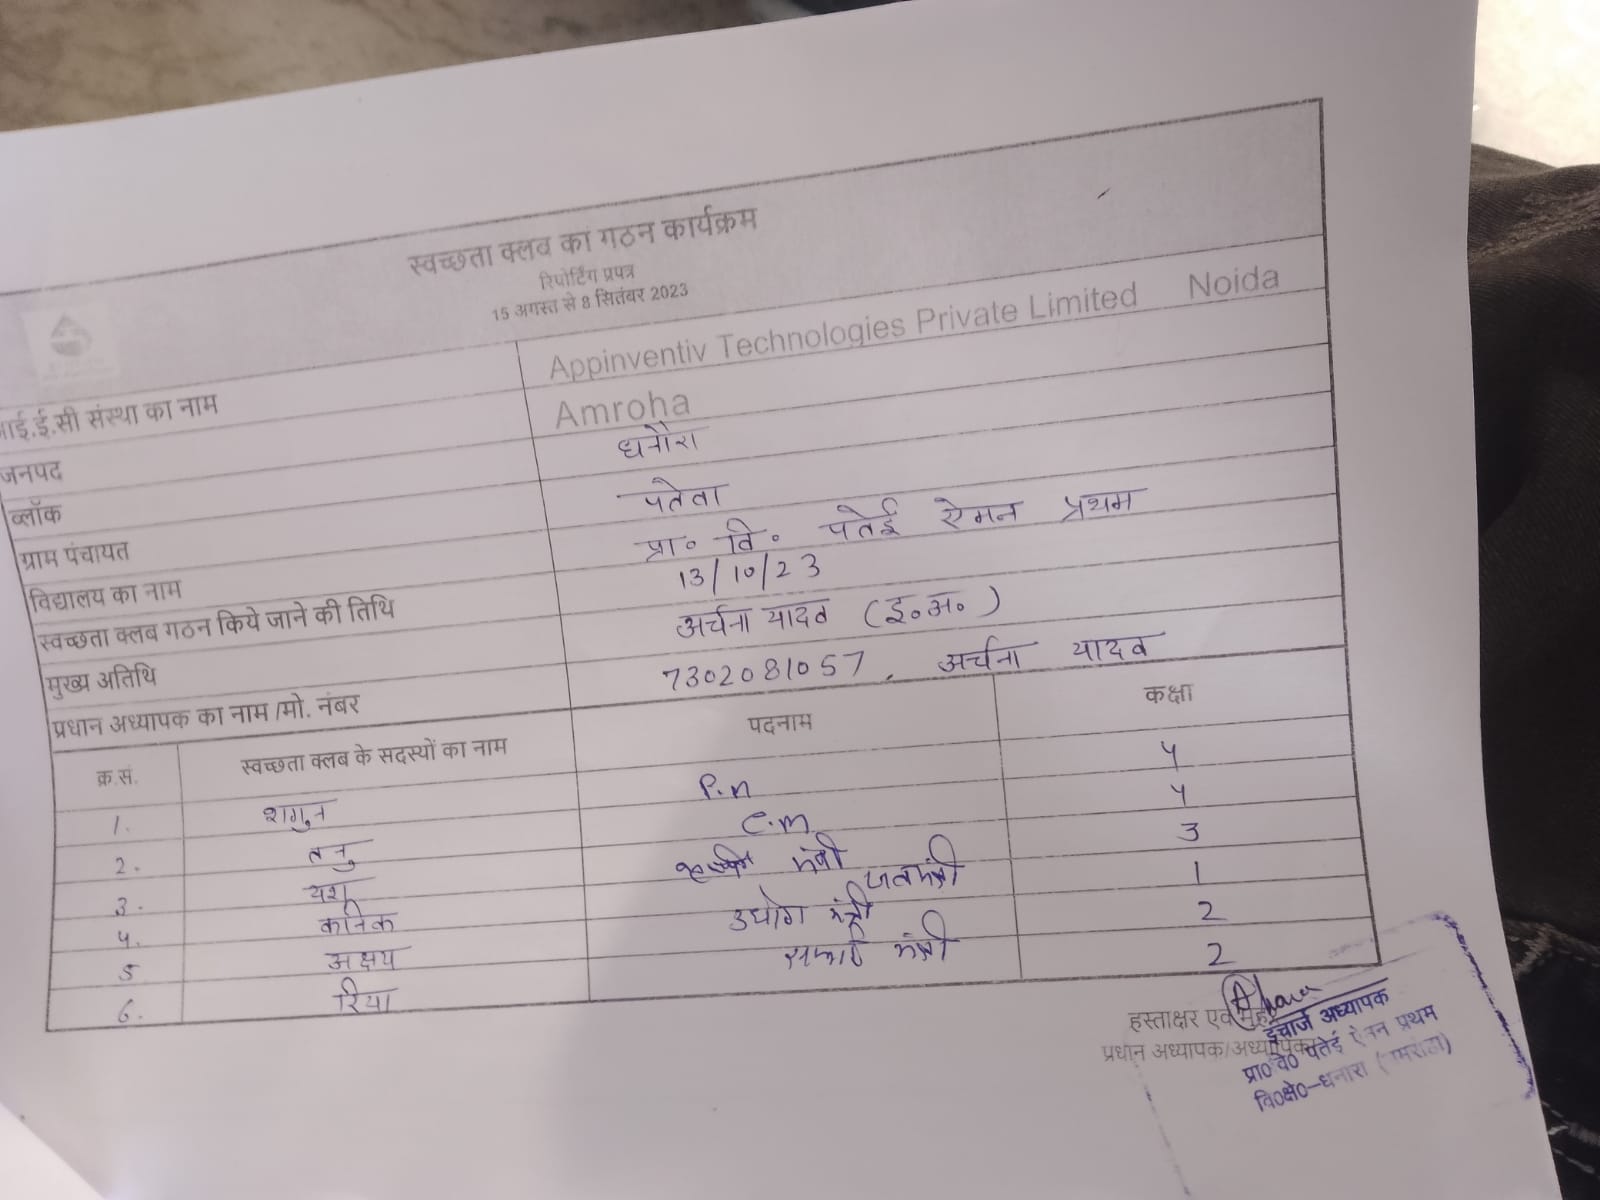 स्वच्छता क्लब का गठन कार्यक्रम
रिपोर्टिंग प्रपत्र
15 अगस्त से 8 सितंबर 2023
आई.ई.सी संस्था का नाम Appinventiv Technologies Private Limited Noida
जनपद Amroha
ब्लॉक धनौरा
ग्राम पंचायत
विद्यालय का नाम प्रा० वि० पतेई ऐमन प्रथम
स्वच्छता क्लब गठन किये जाने की तिथि 13/10/23
मुख्य अतिथि अर्चना यादव (इ०अ०)
प्रधान अध्यापक का नाम /मो. नंबर 7302081057, अर्चना यादव
क्र.सं. स्वच्छता क्लब के सदस्यों का नाम पदनाम कक्षा
1. शगुन P.M 4
2. तनु C.M 4
3. यश मंत्री 3
4. कनिक जलमंत्री 1
5 अक्षय उद्योग मंत्री 2
6. रिया मंत्री 2
हस्ताक्षर एवं मुहर
प्रधान अध्यापक/अध्यापिका
इंचार्ज अध्यापक
प्रा०वि० पतेई ऐमन प्रथम
वि०क्षे०-धनौरा (अमरोहा)